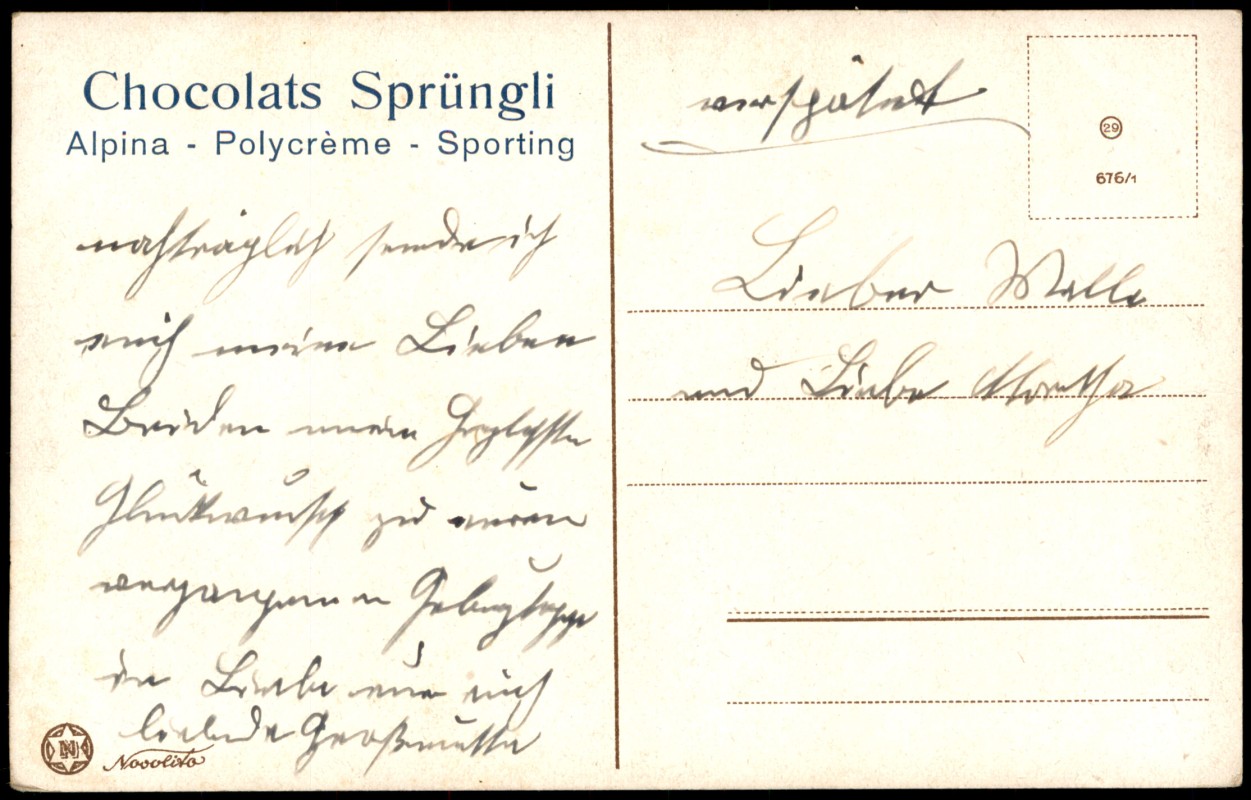 Chocolats Sprüngli
Alpina - Polycrème - Sporting
nachträglich sende ich
euch meine Lieben
Beiden meine Herzlichste
Glückwunsch zu euren
vergangenen Geburtstage
in Liebe eure euch
liebende Großmutter
N Novolito
verspätet
29
676/1
Lieber Wille
und Liebe Martha